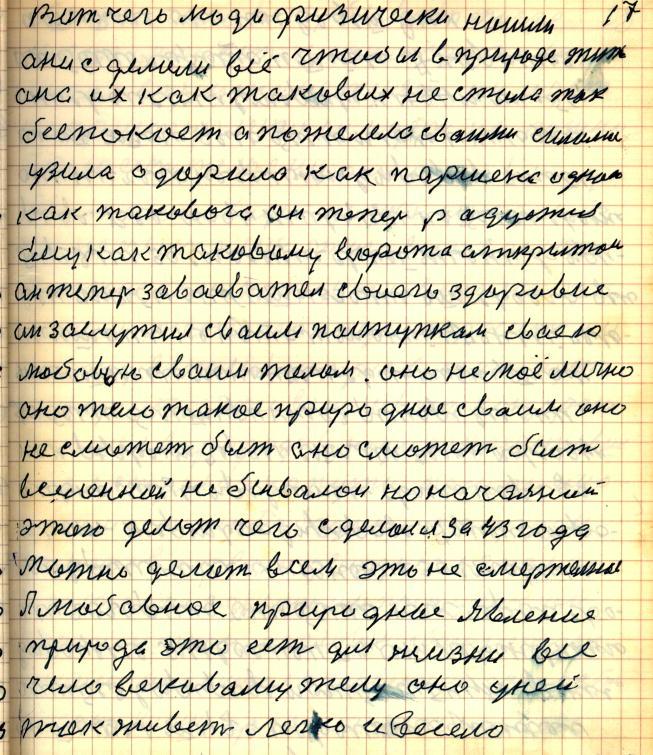 Вот чего люди физически нашли 17
они сделали всё чтобы в природе жит
она их как таковых не стала так
беспокоет а пожелела своими силами
узила одорила как паршека одного
как такового он тепер радуетия
ему как таковому ворота открытои
он тепер заваевател своего здоровие
он заслужил своим паступкам своею
любовую своим телом. оно не моё лично
оно тело такое природное своим оно
не сможет быт оно сможет быт
вселенной небывалой но начальной
этого делат чего сделал я за 43 года
можно делат всем это не смертельное
Любовное природное явление
природа это ест для жизни все
человековому телу оно у ней
так живет легко и весело